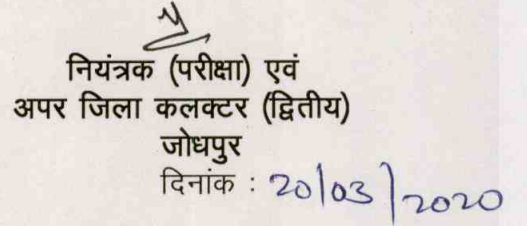 नियंत्रक (परीक्षा) एवं
अपर जिला कलक्टर (द्वितीय)
जोधपुर
दिनांक : 20/03/2020